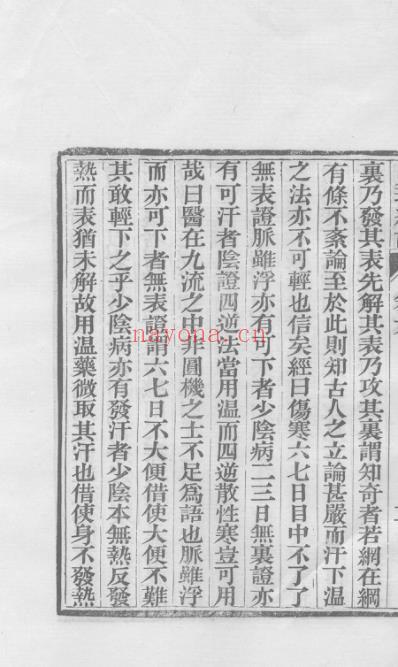 裏乃發其表先解其表乃攻其裏謂知竒者若網在綱
有條不紊論至於此則知古人之立論甚嚴而汗下温
之法亦不可輕也信矣經曰傷寒六七日目中不了了
無表證脈雖浮亦有可下者少陰病二三日無裏證亦
有可汗者陰證四逆法當用温而四逆散性寒豈可用
哉曰醫在九流之中非圓機之士不足爲語也脈雖浮
而亦可下者無表證謂六七日不大便借使大便不難
其敢輕下之乎少陰病亦有發汗者少陰本無熱反發
熱而表猶未解故用温藥微取其汗也借使身不發熱
nayona.cn